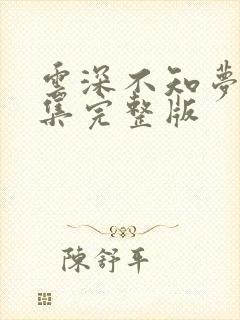 雲深不知夢
集完整版
陳舒平